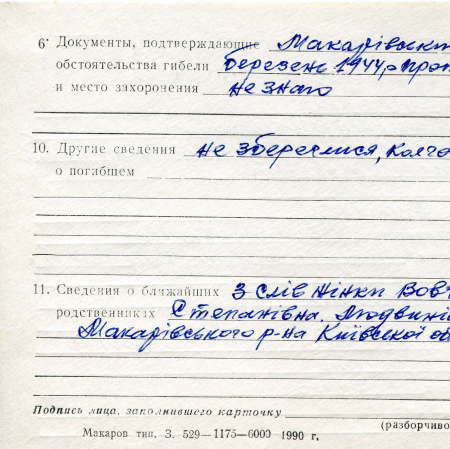 6· Документы, подтверждающие Макарівськ
обстоятельства гибели березень 1944,
и место захоронения не знаю
10. Другие сведения не збереглися,
о погибшем
11. Сведения о ближайших З слів жінки Вовч
родственниках Степанівна.
Макарівського р-на Київської об
Подпись лица, заполнившего карточку
(разборчиво
Макаров тип. З. 529—1175—6000 1990 г.